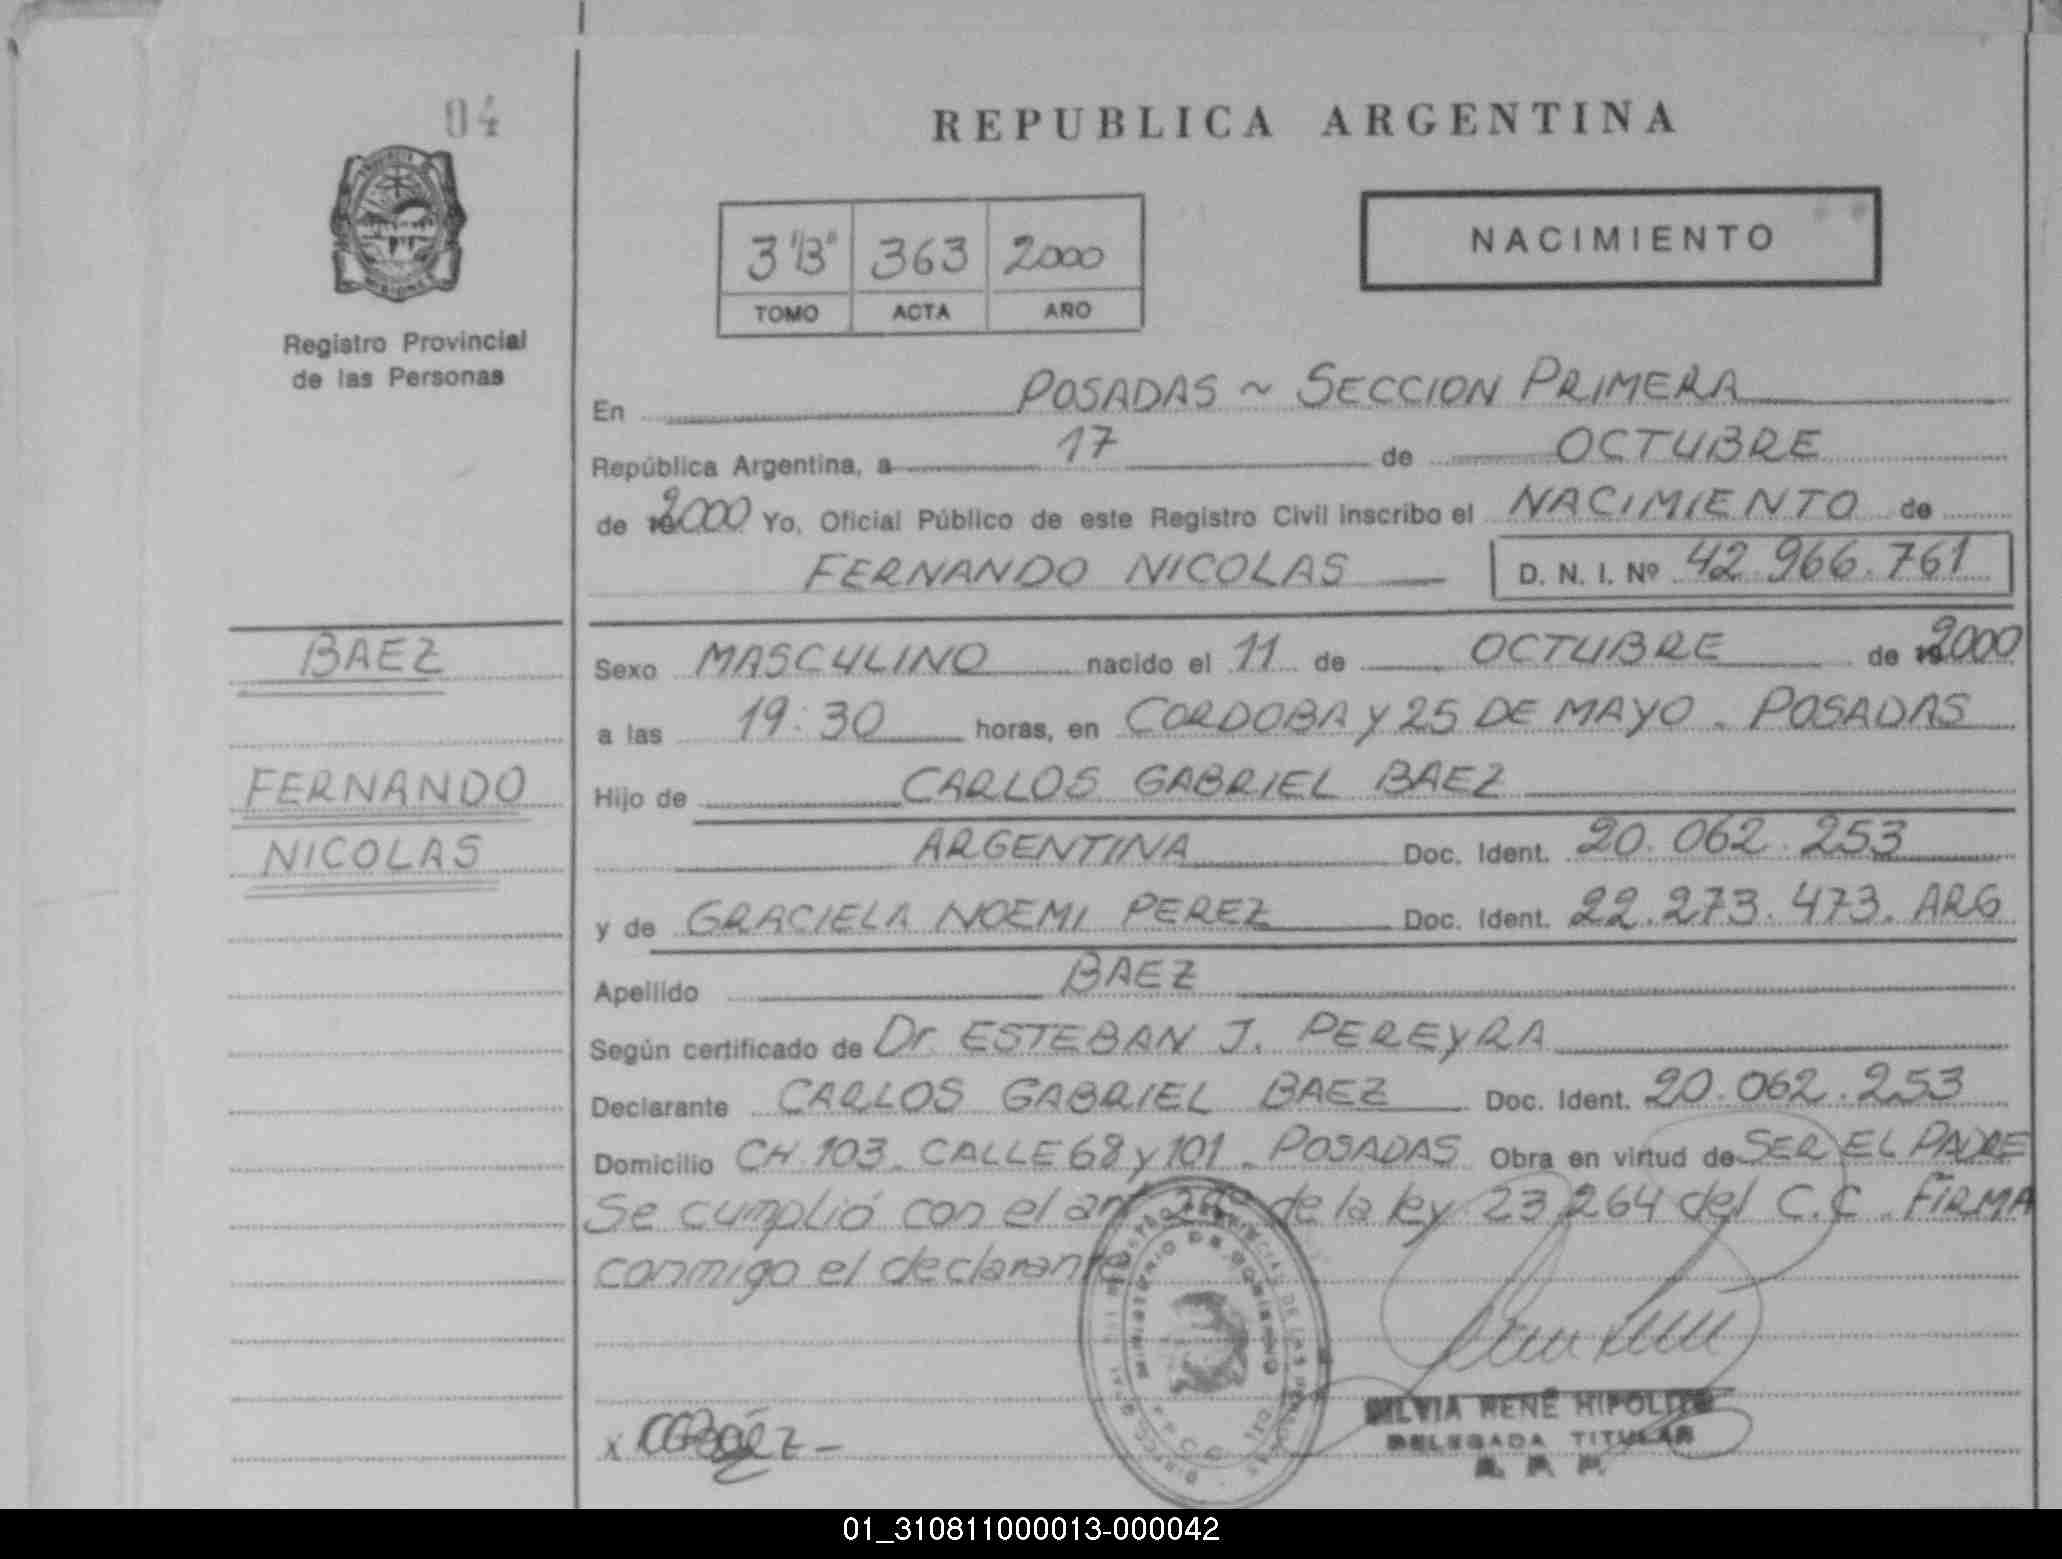 04
REPUBLICA ARGENTINA
NACIMIENTO
3 "B" 363 2000
TOMO ACTA AÑO
Registro Provincial
de las Personas
En POSADAS ~ SECCION PRIMERA
República Argentina, a 17 de OCTUBRE
de 2000 Yo, Oficial Público de este Registro Civil inscribo el NACIMIENTO de
FERNANDO NICOLAS D. N. I. Nº 42.966.761
BAEZ
FERNANDO
NICOLAS
Sexo MASCULINO nacido el 11 de OCTUBRE de 2000
a las 19:30 horas, en CORDOBA Y 25 DE MAYO - POSADAS
Hijo de CARLOS GABRIEL BAEZ
ARGENTINA Doc. Ident. 20.062.253
y de GRACIELA NOEMI PEREZ Doc. Ident. 22.273.473. ARG
Apellido BAEZ
Según certificado de Dr. ESTEBAN J. PEREYRA
Declarante CARLOS GABRIEL BAEZ Doc. Ident. 20.062.253
Domicilio CH.103. CALLE 68 y 101 - POSADAS Obra en virtud de SER EL PADRE
Se cumplió con el art. de la ley 23.264 del C.C. FIRMA
conmigo el declarante
MINISTERIO DE GOBIERNO
x Báez -
SILVIA RENÉ HIPOLITO
DELEGADA TITULAR
R. P. P.
01_310811000013-000042